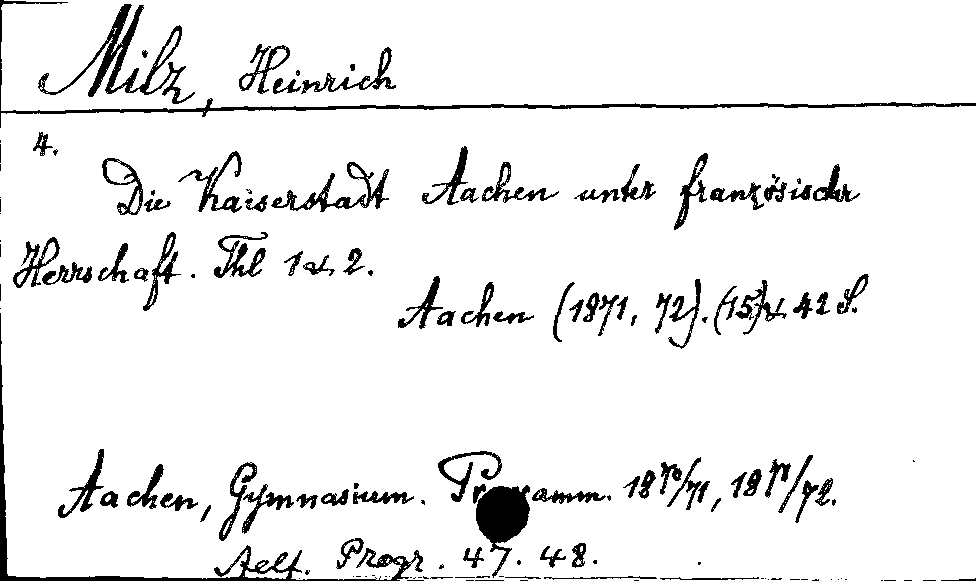 Milz, Heinrich
4.
Die Kaiserstadt Aachen unter französischer
Herrschaft. Thl 1 u. 2.
Aachen (1871, 72). (15) u. 42 S.
Aachen, Gymnasium. Programm. 1870/71, 1871/72.
Progr. 47. 48.